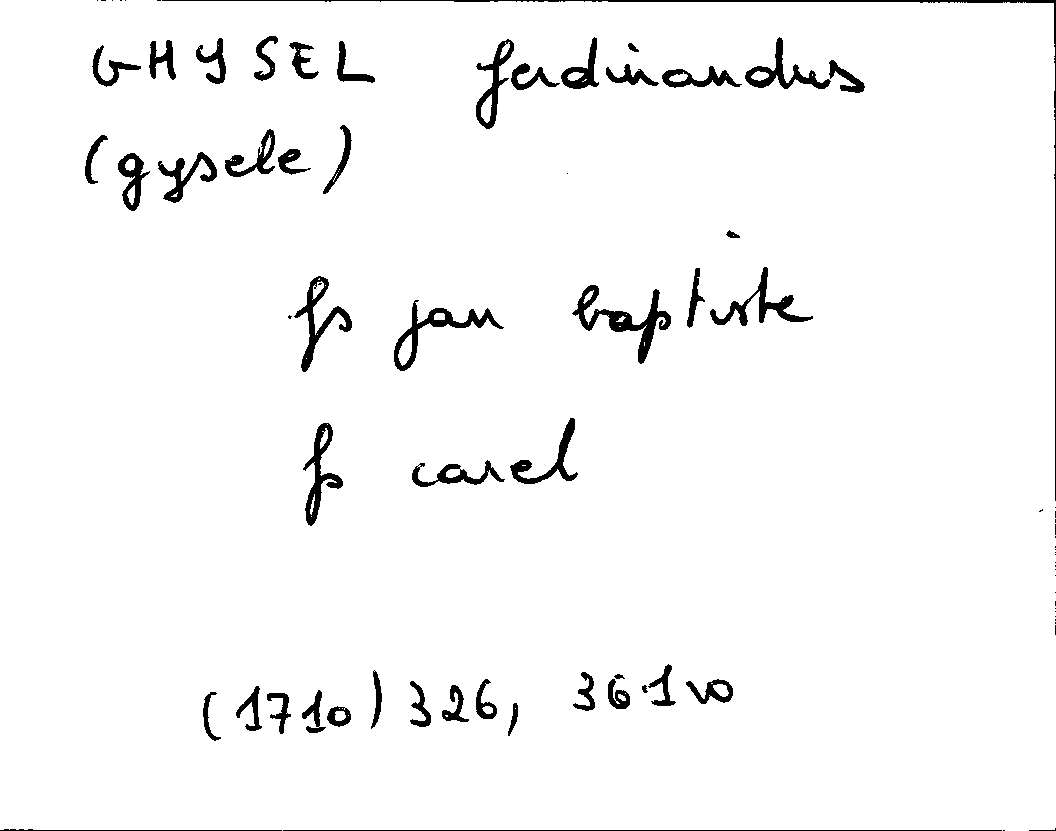 GHYSEL ferdinandus
(gysele)
fs jan baptiste
fs carel
(1710) 326, 361vo